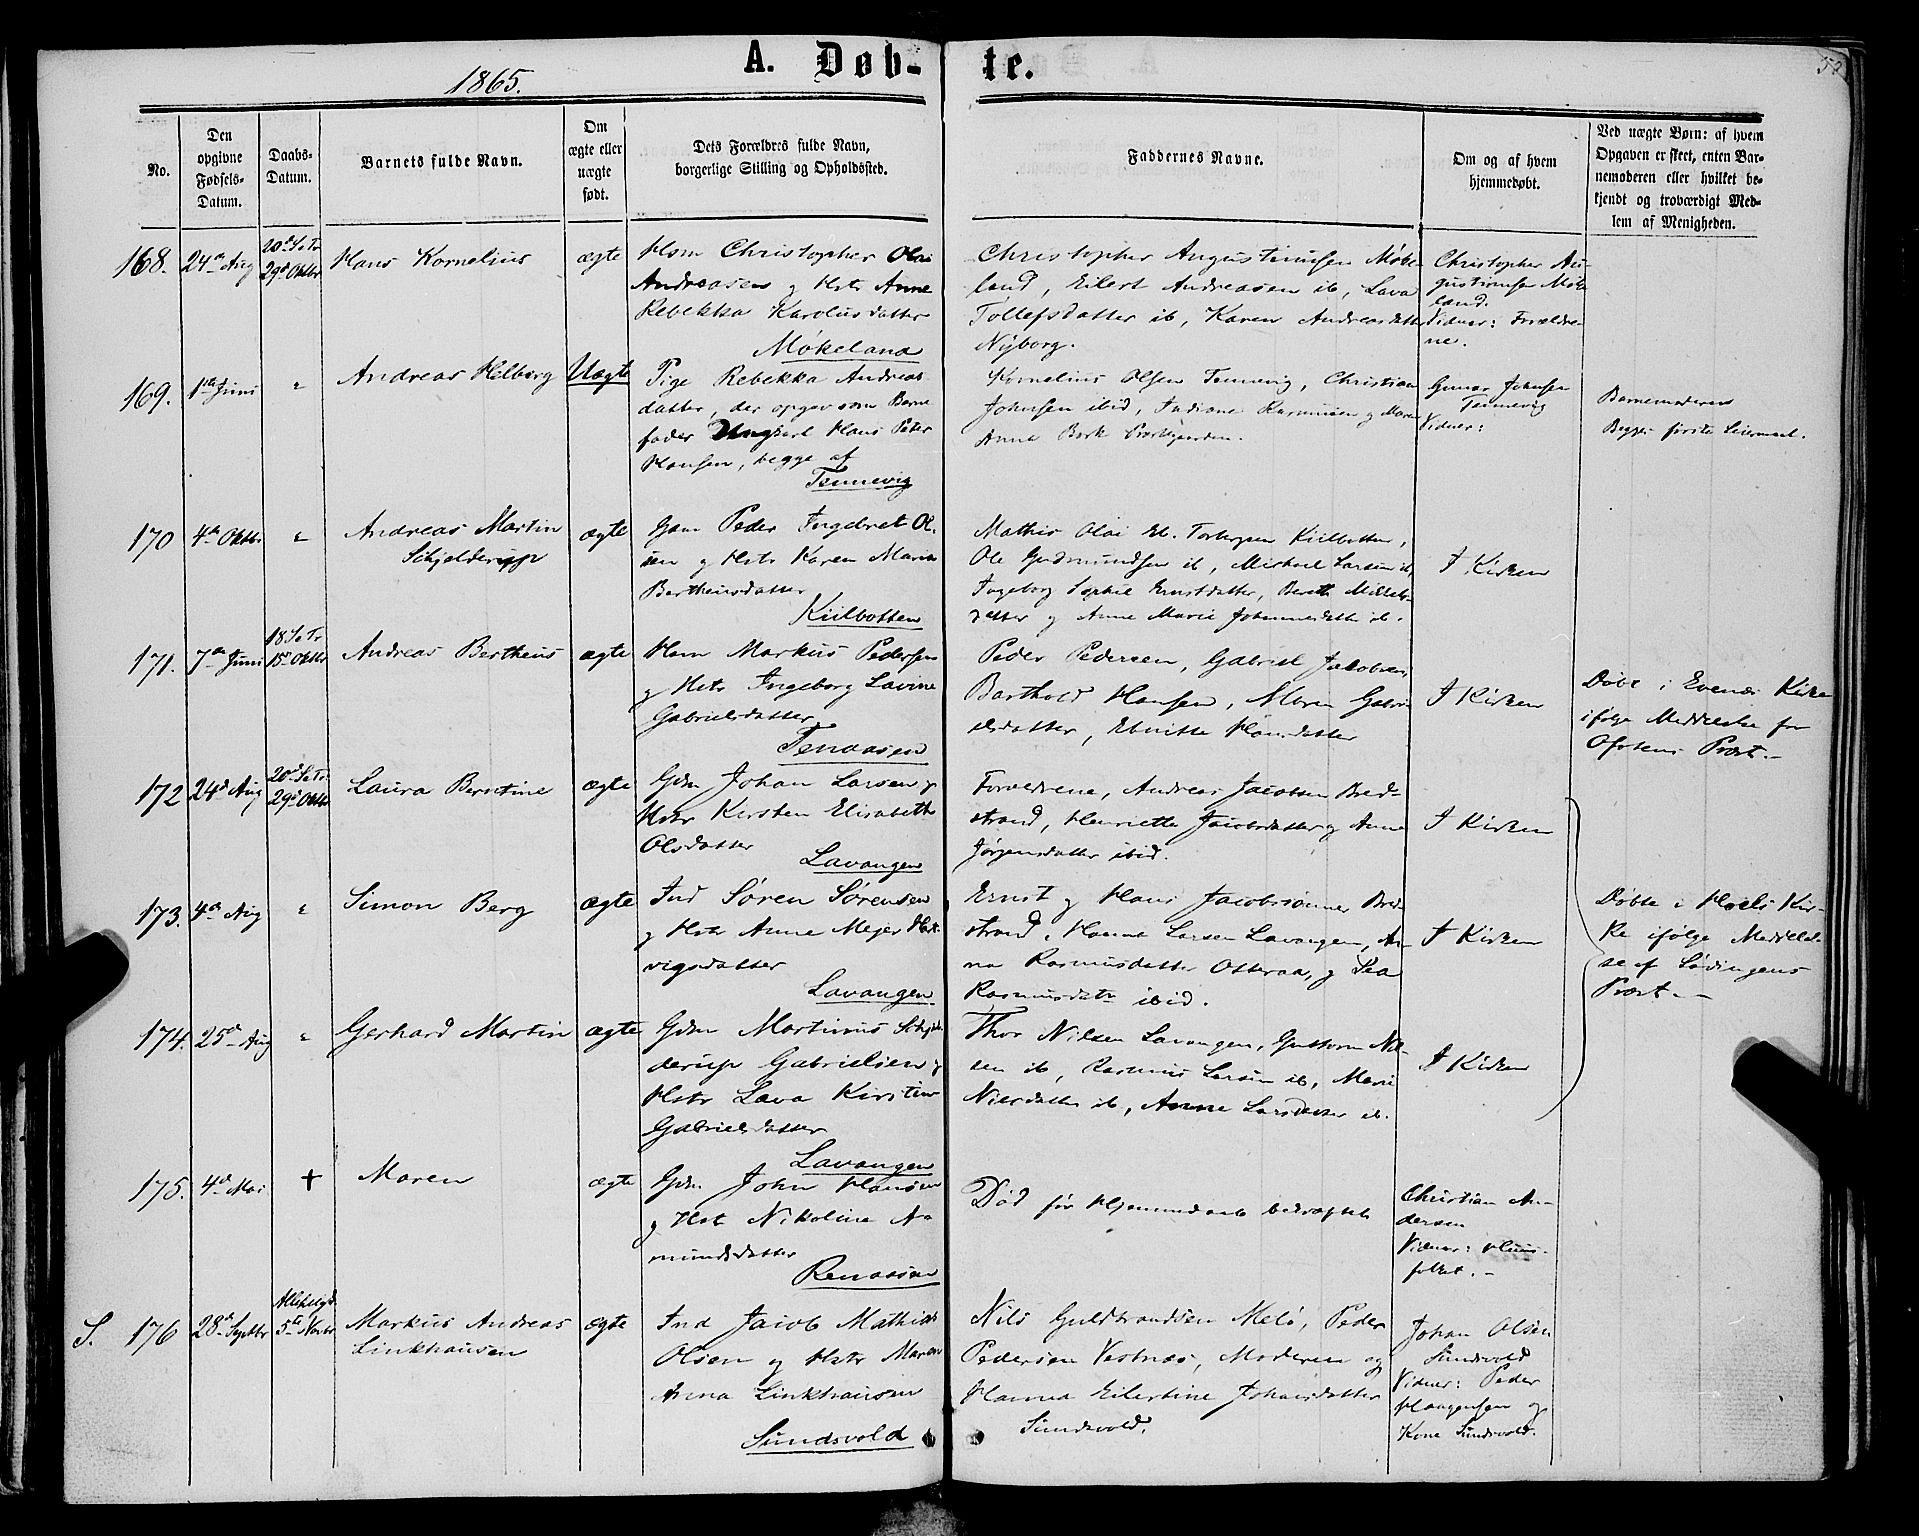 1865.
A. Døb-
te.
No.
Den
opgivne
Fødsels-
Datum.
Daabs-
Datum.
Barnets fulde Navn.
Om
ægte eller
uægte
født.
Dets Forældres fulde Navn,
borgerlige Stilling og Opholdssted.
Faddernes Navne.
Om og af hvem
hjemmedøbt.
Ved uægte Børn: af hvem
Opgaven er skeet, enten Bar-
nemoderen eller hvilket be-
kjendt og troværdigt Med-
lem af Menigheden.
168. 24de Aug
20d S. e Tr
29d Oktbr
Hans Kornelius
ægte
Hsm Christopher Olai
Andreasen og Hstr Anne
Rebekka Karolusdatter
Møkeland
Christopher Augustinusen Møke-
land, Eilert Andreasen ib, Lava
Tollefsdatter ib, Karen Andreasdatter
Nyborg.
Christopher Au-
gustinusen Møke
land.
Vidner: Forældre-
ne.
169. 1ste Juni "
Andreas Helberg
Uægte
Pige Rebekka Andreas
datter, der opgav som Barne
fader Ungkarl Hans Peter
Hansen, begge af
Tennevig
Kornelius Olsen Tennevig, Christian
Johnsen ibid, Indiane Rasmussen og Maren
Anna Bork Præstgaarden.
Gunar Johnsen
Tennevig
Vidner:
Barnemoderen
Begges første Leiermaal.
170 4de Oktbr "
Andreas Martin
Schjelderup
ægte
Gsm Peder Ingebret Ol-
sen og Hstr Karen Maria
Bertheusdatter
Kiilbotten
Mathis Olai El. Torbergsen Kiilbotten,
Ole Gudmundsen ib, Michael Larsen ib,
Ingeborg Sophie Ernstdatter, Bereth Mikkels-
datter og Anne Marie Johannesdatter ib.
I Kirken
171. 7de Juni
18 S. e Tr
15de Oktbr
Andreas Bertheus
ægte
Hsm Markus Pedersen
og Hstr Ingeborg Lavine
Gabrielsdatter
Tenaasen
Peder Pedersen, Gabriel Jakobsen,
Barthold Hansen, Maren Gabri
elsdatter, Hansdatter
I Kirken
Døbt i Evenæs Kirke
ifølge Meddelelse fra
Ofotens Præst.-
172 24d Aug
20d S. e Tr.
29d Oktbr
Laura Berntine
ægte
Gdm Johan Larsen og
Hstr Kirsten Elisabeth
Olsdatter
Lavangen
Forældrene, Andreas Jacobsen Bred-
strand, Henriette Jacobsdatter og Anne
Jørgensdatter ibid.
I Kirken
173. 4de Aug "
Simon Berg
ægte
Ind Søren Sørensen
og Hstr Anne Mejer Hart-
vigsdatter
Lavangen
Ernst og Hans Jacobsønner Bred-
strand, Larsen Lavangen, An-
na Rasmusdatter Osteraa, og Pea
Rasmusdatr ibid.
I Kirken
Døbte i Hols Kir-
ke ifølge Meddelel-
se af Lødingens
Præst.-
174. 25de Aug "
Gerhard Martin
ægte
Gdm Martinus Schjel-
derup Gabrielsen og
Hstr Lava Kirstine
Gabrielsdatter
Lavangen
Thor Nilsen Lavangen, Guttorm Nil-
sen ib, Rasmus Larsen ib, Marie
Nilsdatter ib, Anne Larsdatter ib.
I Kirken
175. 4de Mai +
Maren
ægte
Gdm John Hansen
og Hst Nikoline A-
mundsdatter
Renaasen
Død før Hjemmedaab bekræftet
Christian An-
dersen
Vidner: Huus-
folket.-
S. 176 28de Septbr
Allehelgd
5te Novbr
Markus Andreas
Linkhausen
ægte
Ind Jacob Mathias
Olsen og Hstr Maren
Anna Linkhausen
Sundsvold
Nils Guldbrandsen Melø, Peder
Pedersen Vestnæs, Moderen og
Hanna Eilertine Johansdatter
Sundsvold.
Johan Olsen
Sundsvold
Vidner: Peder
Haagensen og
Kone Sundsvold.